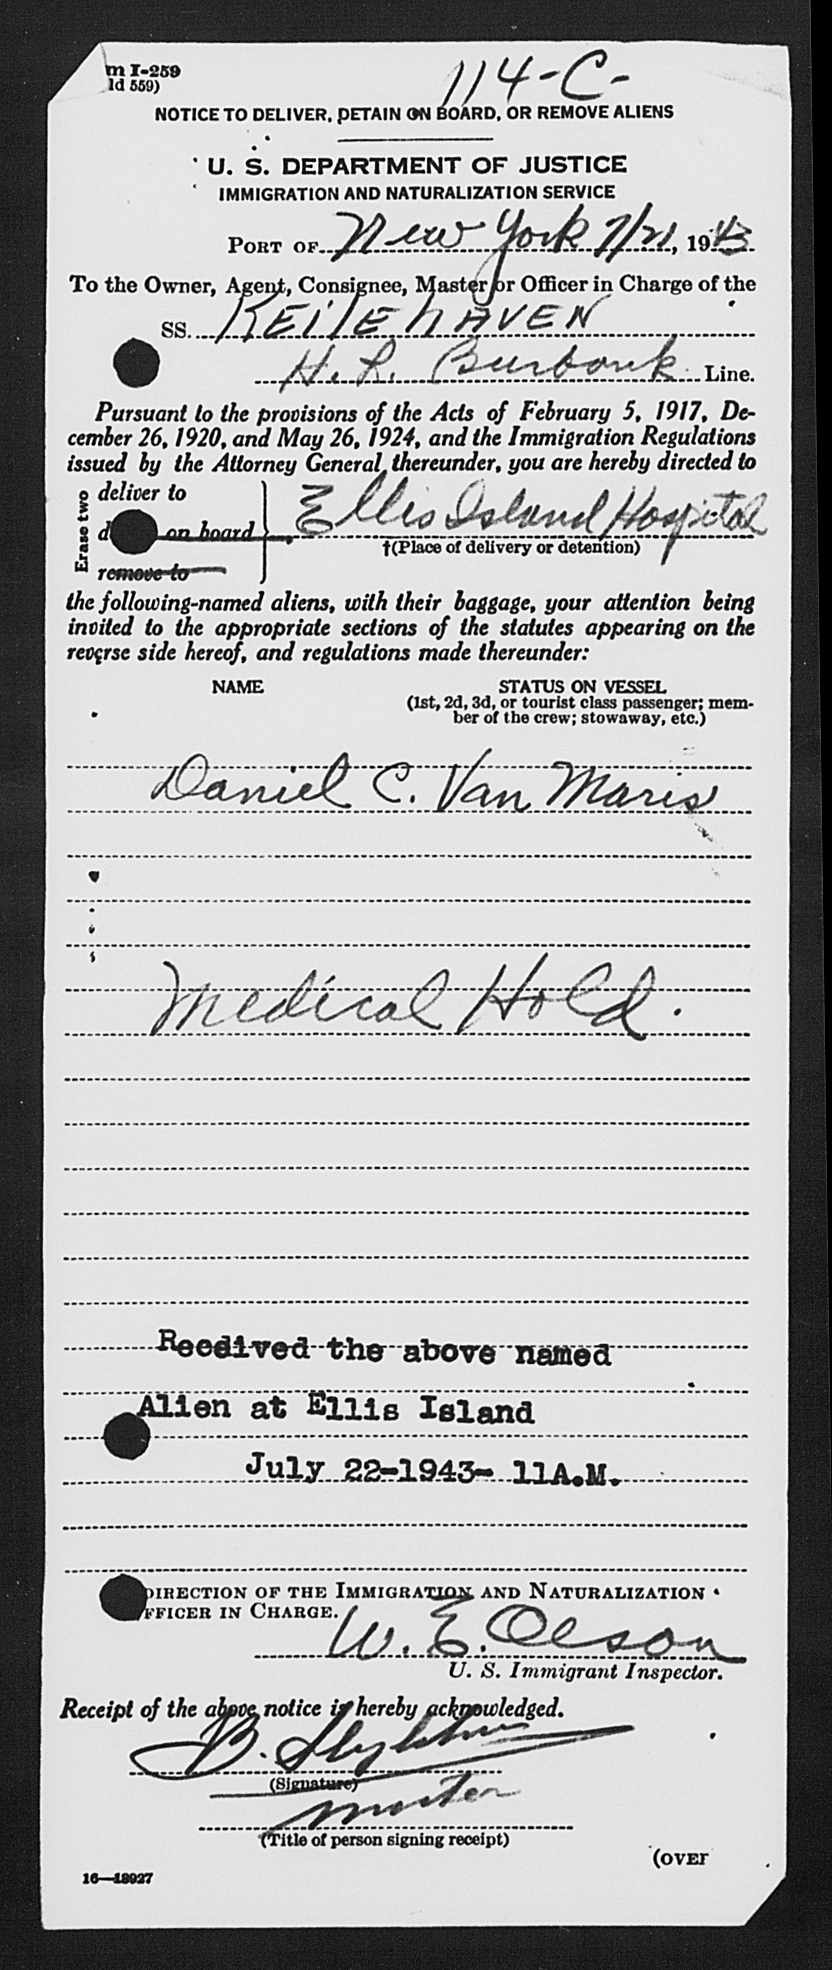 m I-259
ld 559)
114-C-
NOTICE TO DELIVER, DETAIN ON BOARD, OR REMOVE ALIENS
U. S. DEPARTMENT OF JUSTICE
IMMIGRATION AND NATURALIZATION SERVICE
PORT OF New York 7/21, 1943
To the Owner, Agent, Consignee, Master or Officer in Charge of the
SS. KEILEHAVEN
H. R. Burbank Line.
Pursuant to the provisions of the Acts of February 5, 1917, De-
cember 26, 1920, and May 26, 1924, and the Immigration Regulations
issued by the Attorney General thereunder, you are hereby directed to
Erase two
deliver to
d on board
remove to
Ellis Island Hospital
†(Place of delivery or detention)
the following-named aliens, with their baggage, your attention being
invited to the appropriate sections of the statutes appearing on the
reverse side hereof, and regulations made thereunder:
NAME STATUS ON VESSEL
(1st, 2d, 3d, or tourist class passenger; mem-
ber of the crew; stowaway, etc.)
Daniel C. Van Maris
Medical Hold.
Recdived the above named
Alien at Ellis Island
July 22-1943- 11A.M.
DIRECTION OF THE IMMIGRATION AND NATURALIZATION
FFICER IN CHARGE.
W. E. Olson
U. S. Immigrant Inspector.
Receipt of the above notice is hereby acknowledged.
B.
(Signature)
master
(Title of person signing receipt)
(OVER
16—18927